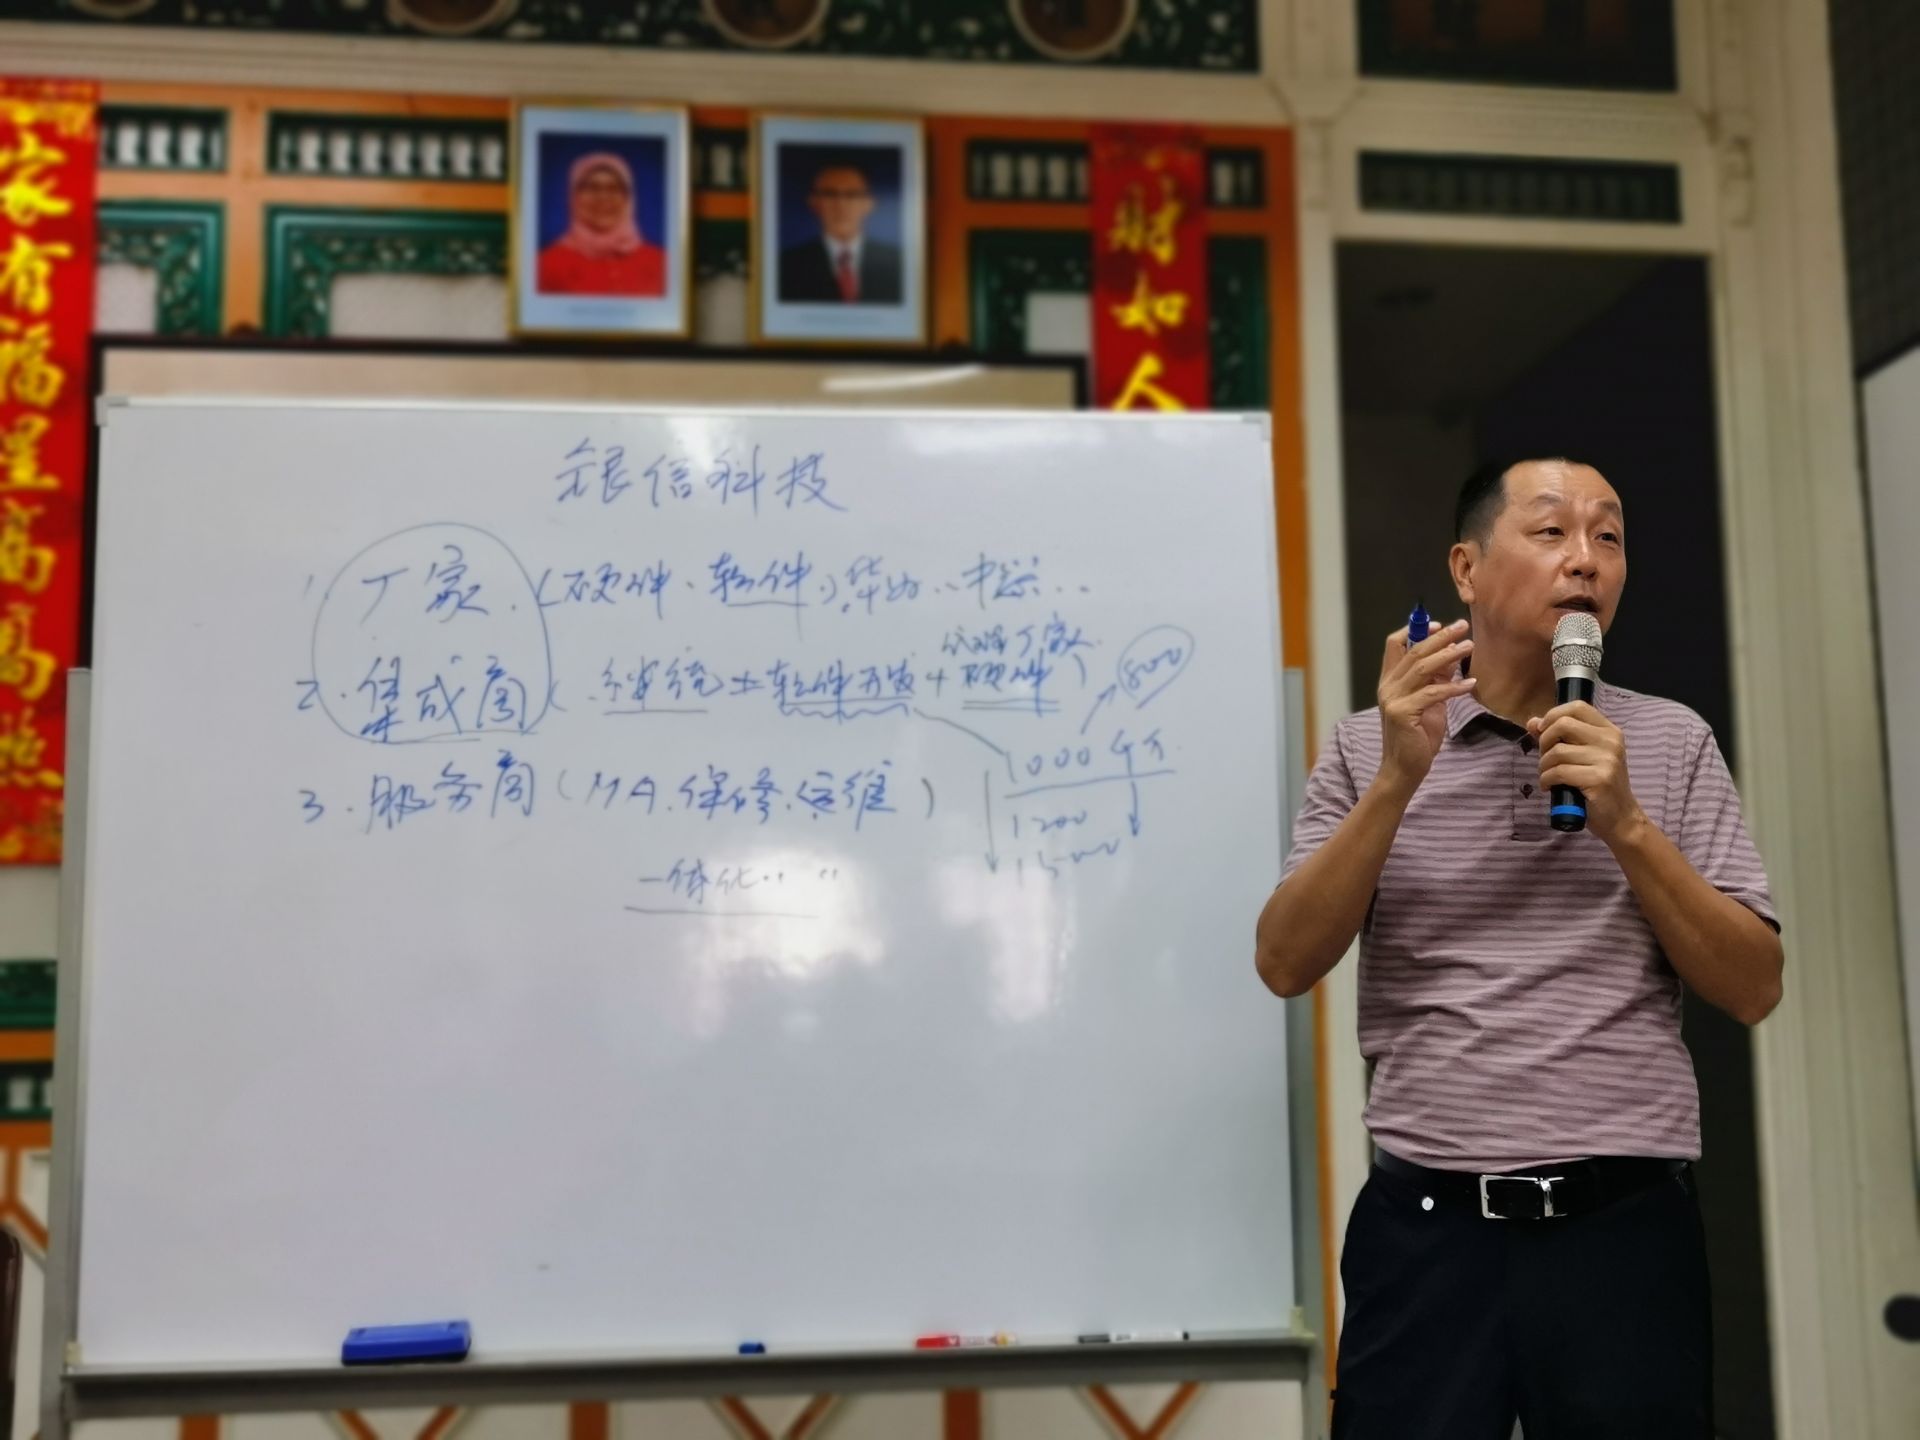 家有福星高高照
财如人
银信科技
1. 厂家. (硬件、软件) 华为.. 中兴...
代理厂家
2. 集成商 ( 软件开发 + 硬件 ) 800
1000 千万.
3. 服务商 (MA. 保修. 运维)
1200
1500
一体化.. ..